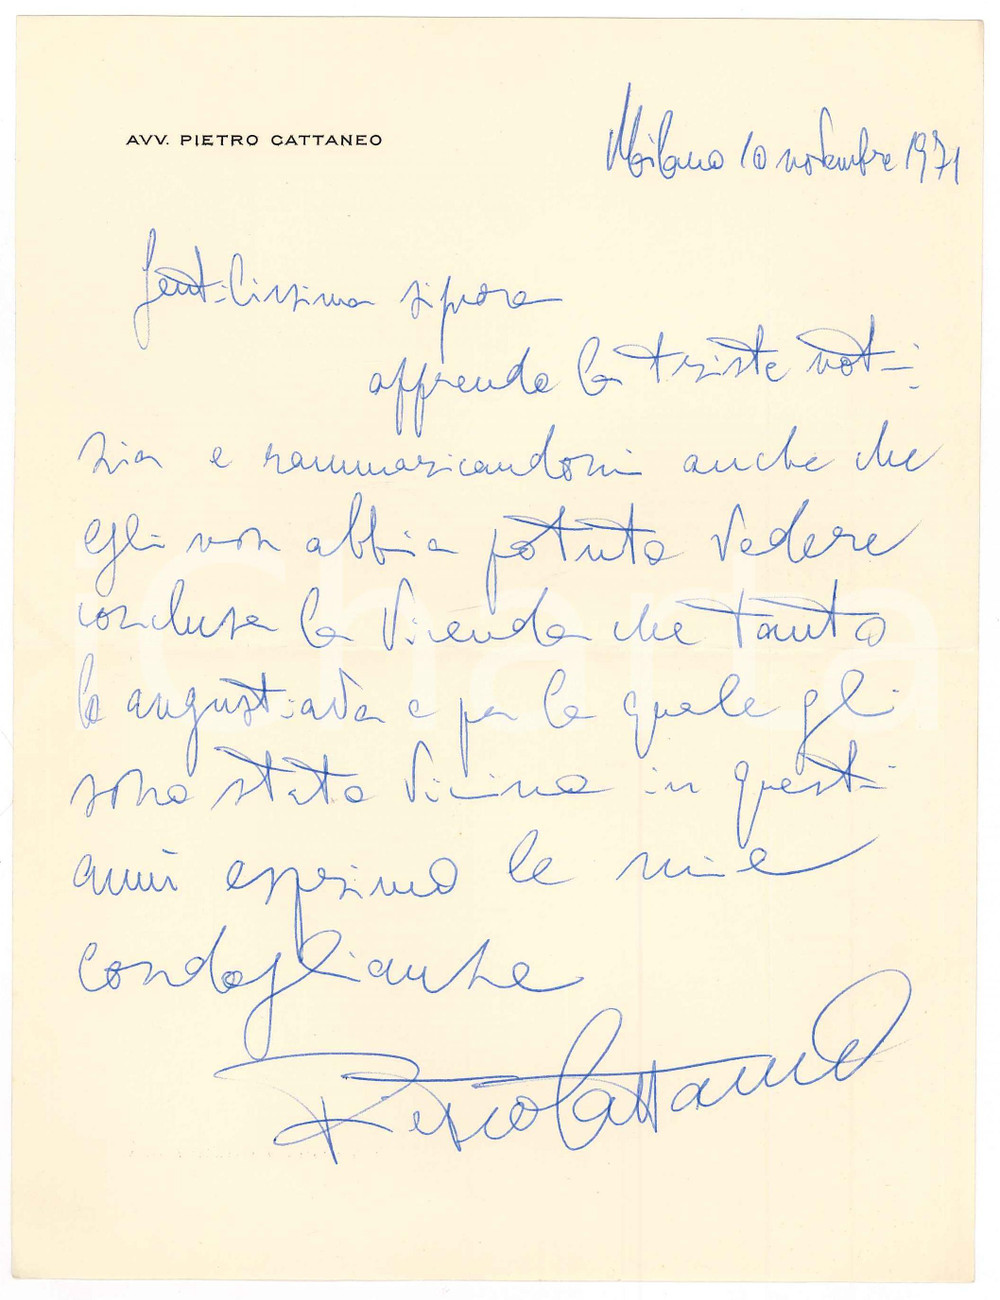 AVV. PIETRO CATTANEO
Milano 10 novembre 1971
Gentilissima signora
apprendo la triste noti-
zia e rammaricandomi anche che
egli non abbia potuto vedere
conclusa la vicenda che tanto
lo angustiava e per la quale gli
sono stato vicino in questi
anni esprimo le mie
condoglianze
Pietro Cattaneo
iCharta